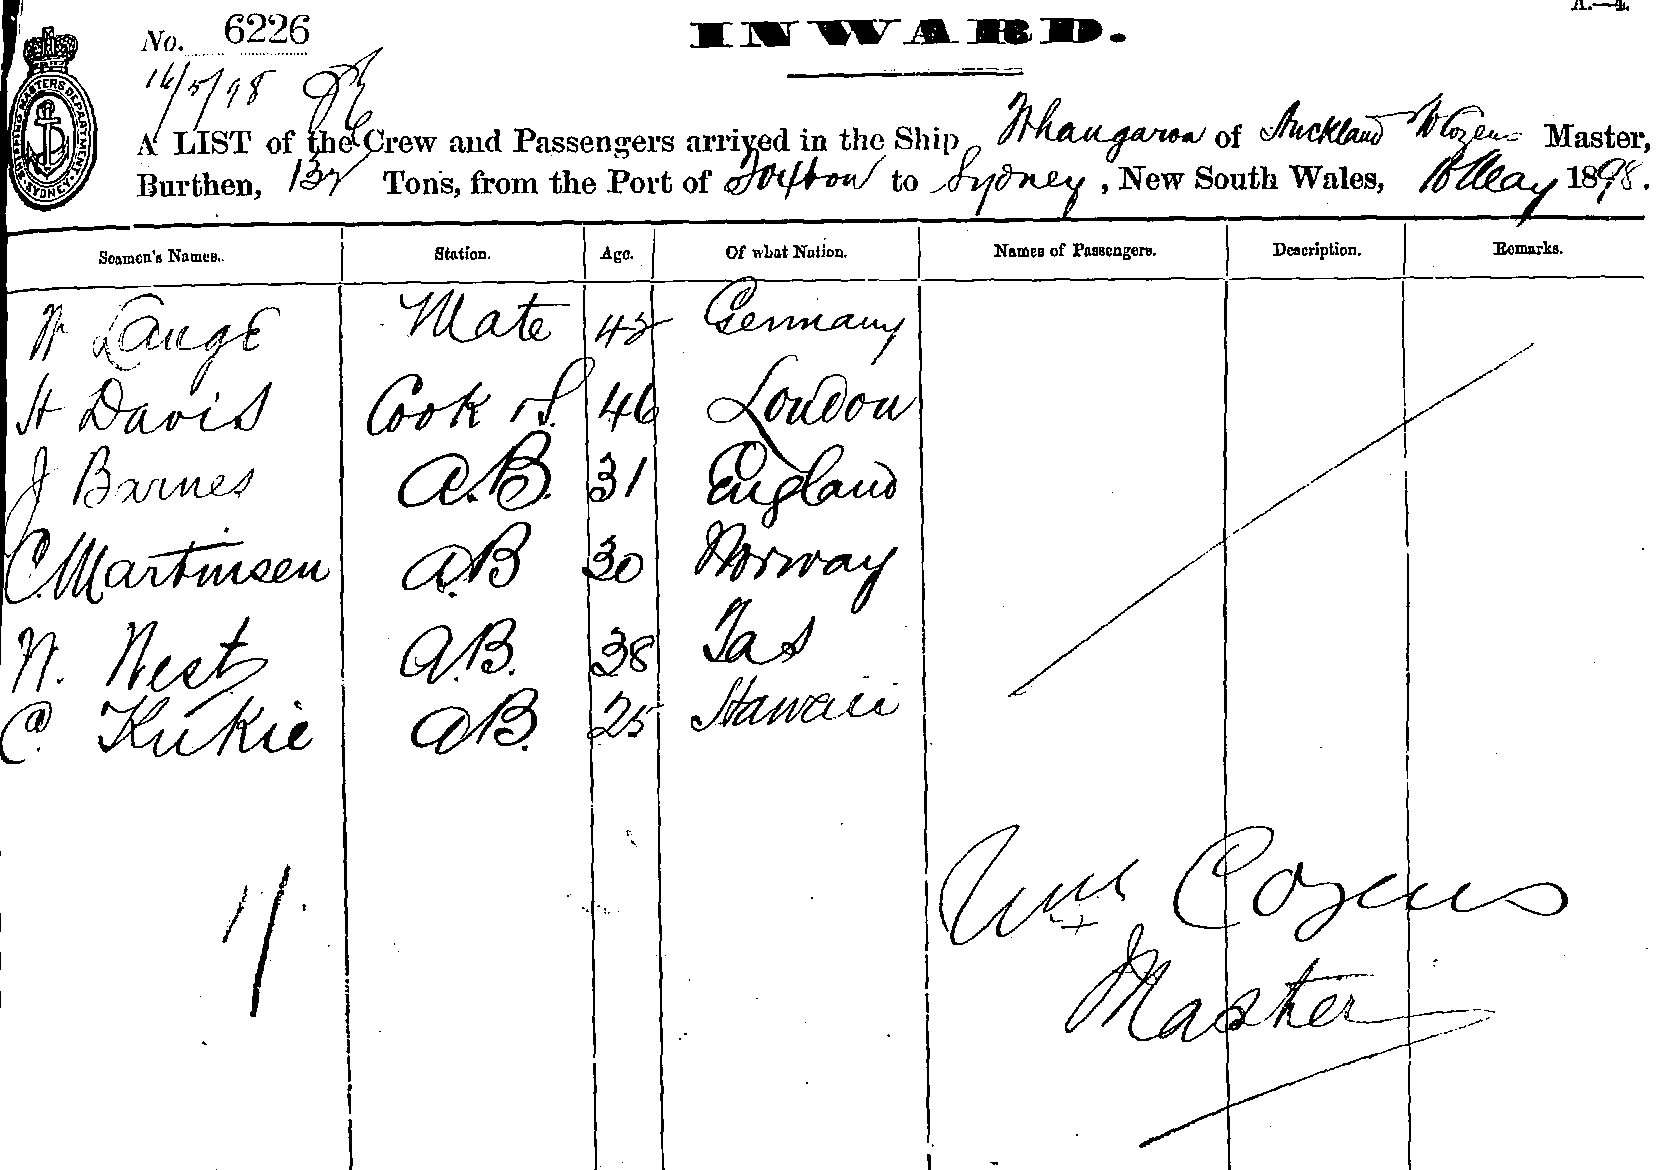 A.—4.
No. 6226
INWARD.
16/5/98
A LIST of the Crew and Passengers arrived in the Ship Whangaroa of Auckland W Cozens Master,
Burthen, Tons, from the Port of to Sydney, New South Wales, May 1898.
Seamen's Names. Station. Age. Of what Nation. Names of Passengers. Description. Remarks.
W Lange Mate Germany
H Davis Cook &S. 46 London
J Barnes A.B. 31 England
C. Martinsen A.B 30 Norway
W. West A.B. 38 Tas
C. Kukie AB. 25 Hawaii
Wm Cozens
Master